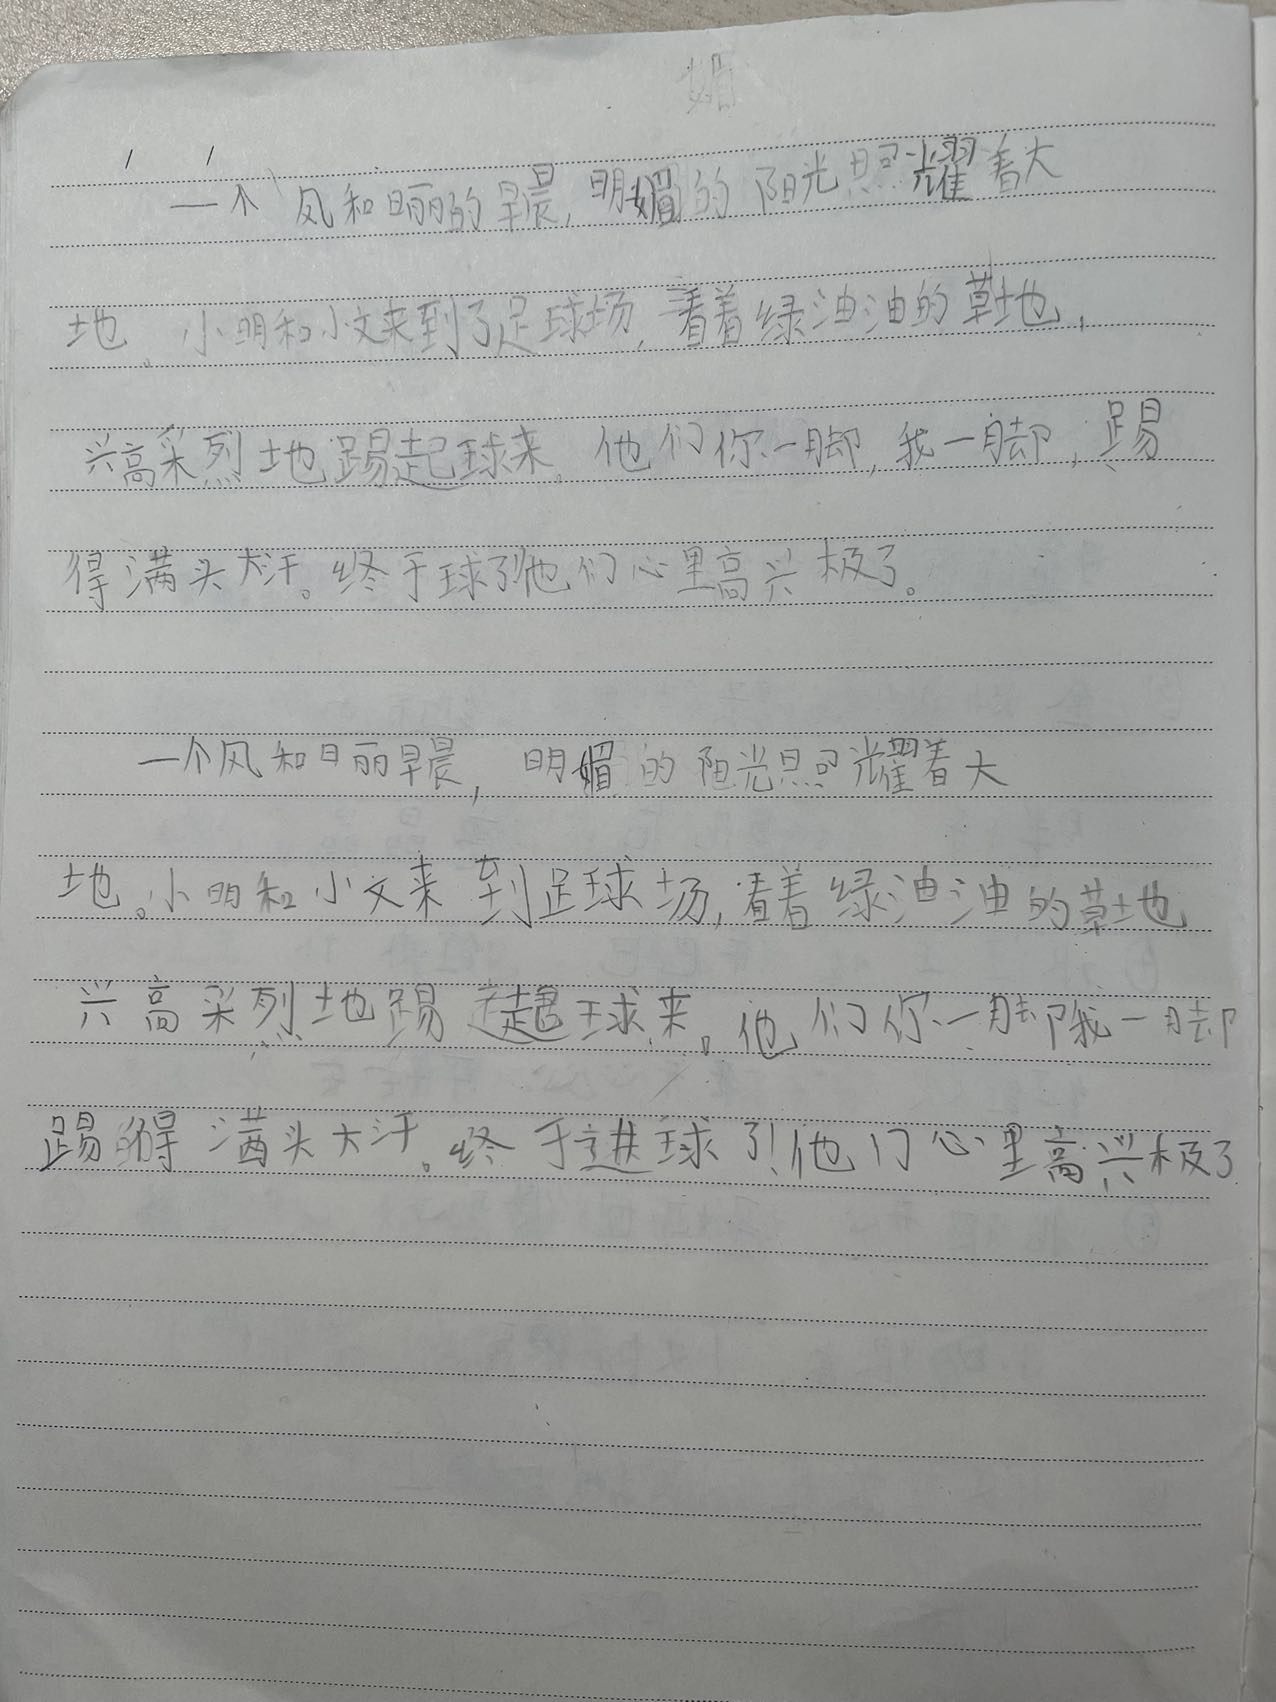 媚
一个风和日丽的早晨,明媚的阳光照耀着大
地。小明和小文来到了足球场,看着绿油油的草地,
兴高采烈地踢起球来。他们你一脚,我一脚,踢
得满头大汗。终于球了他们心里高兴极了。
一个风和日丽早晨,明媚的阳光照耀着大
地。小明和小文来到足球场,看着绿油油的草地
兴高采烈地踢起球来。他们你一脚我一脚
踢得满头大汗。终于进球了!他们心里高兴极了